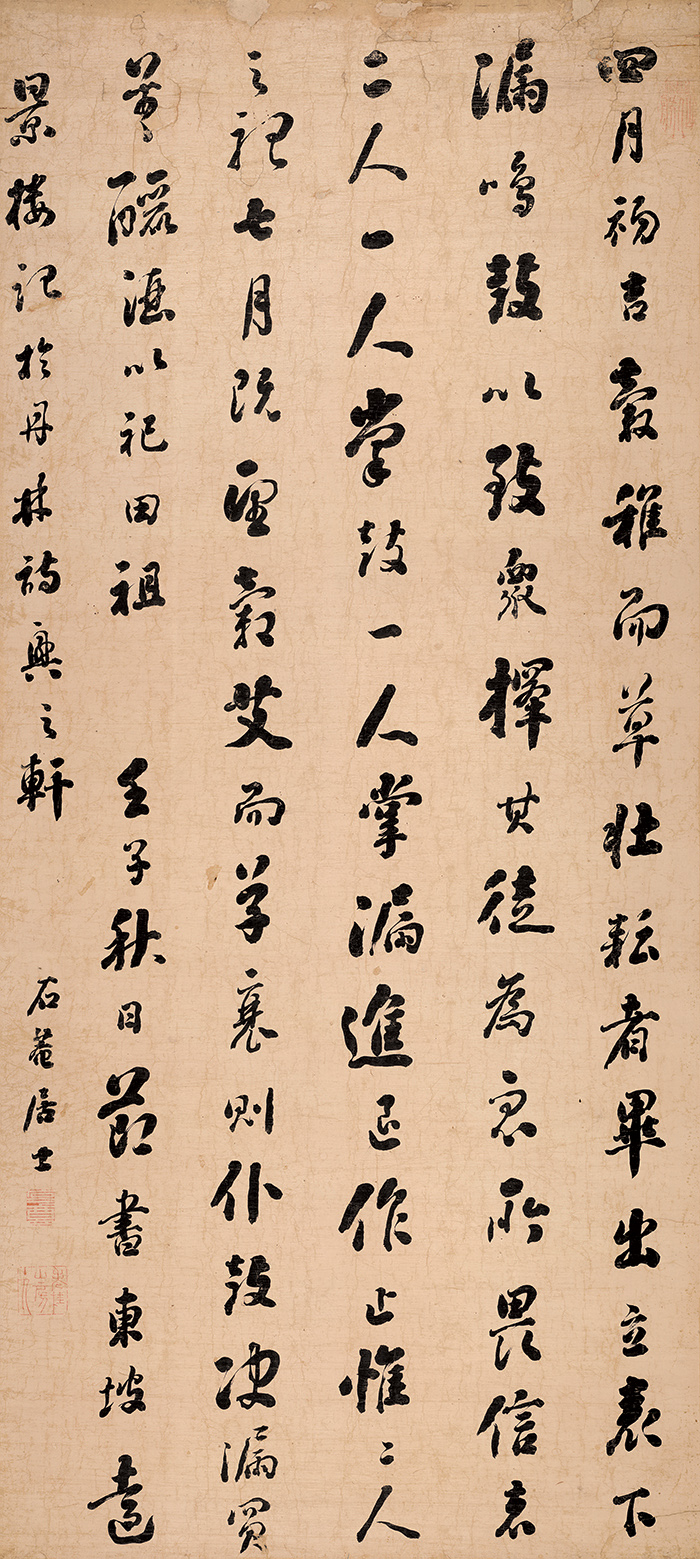 四月初吉穀稚而草壯耘者畢出立表下
漏鳴鼓以致眾擇其徒為眾所畏信者
二人一人掌鼓一人掌漏進退作止惟二人
之聽七月既望穀艾而草衰則仆鼓決漏買
羊醴酒以祀田祖 壬子秋日節書東坡遠
景樓記於丹林詩興之軒
石菴居士